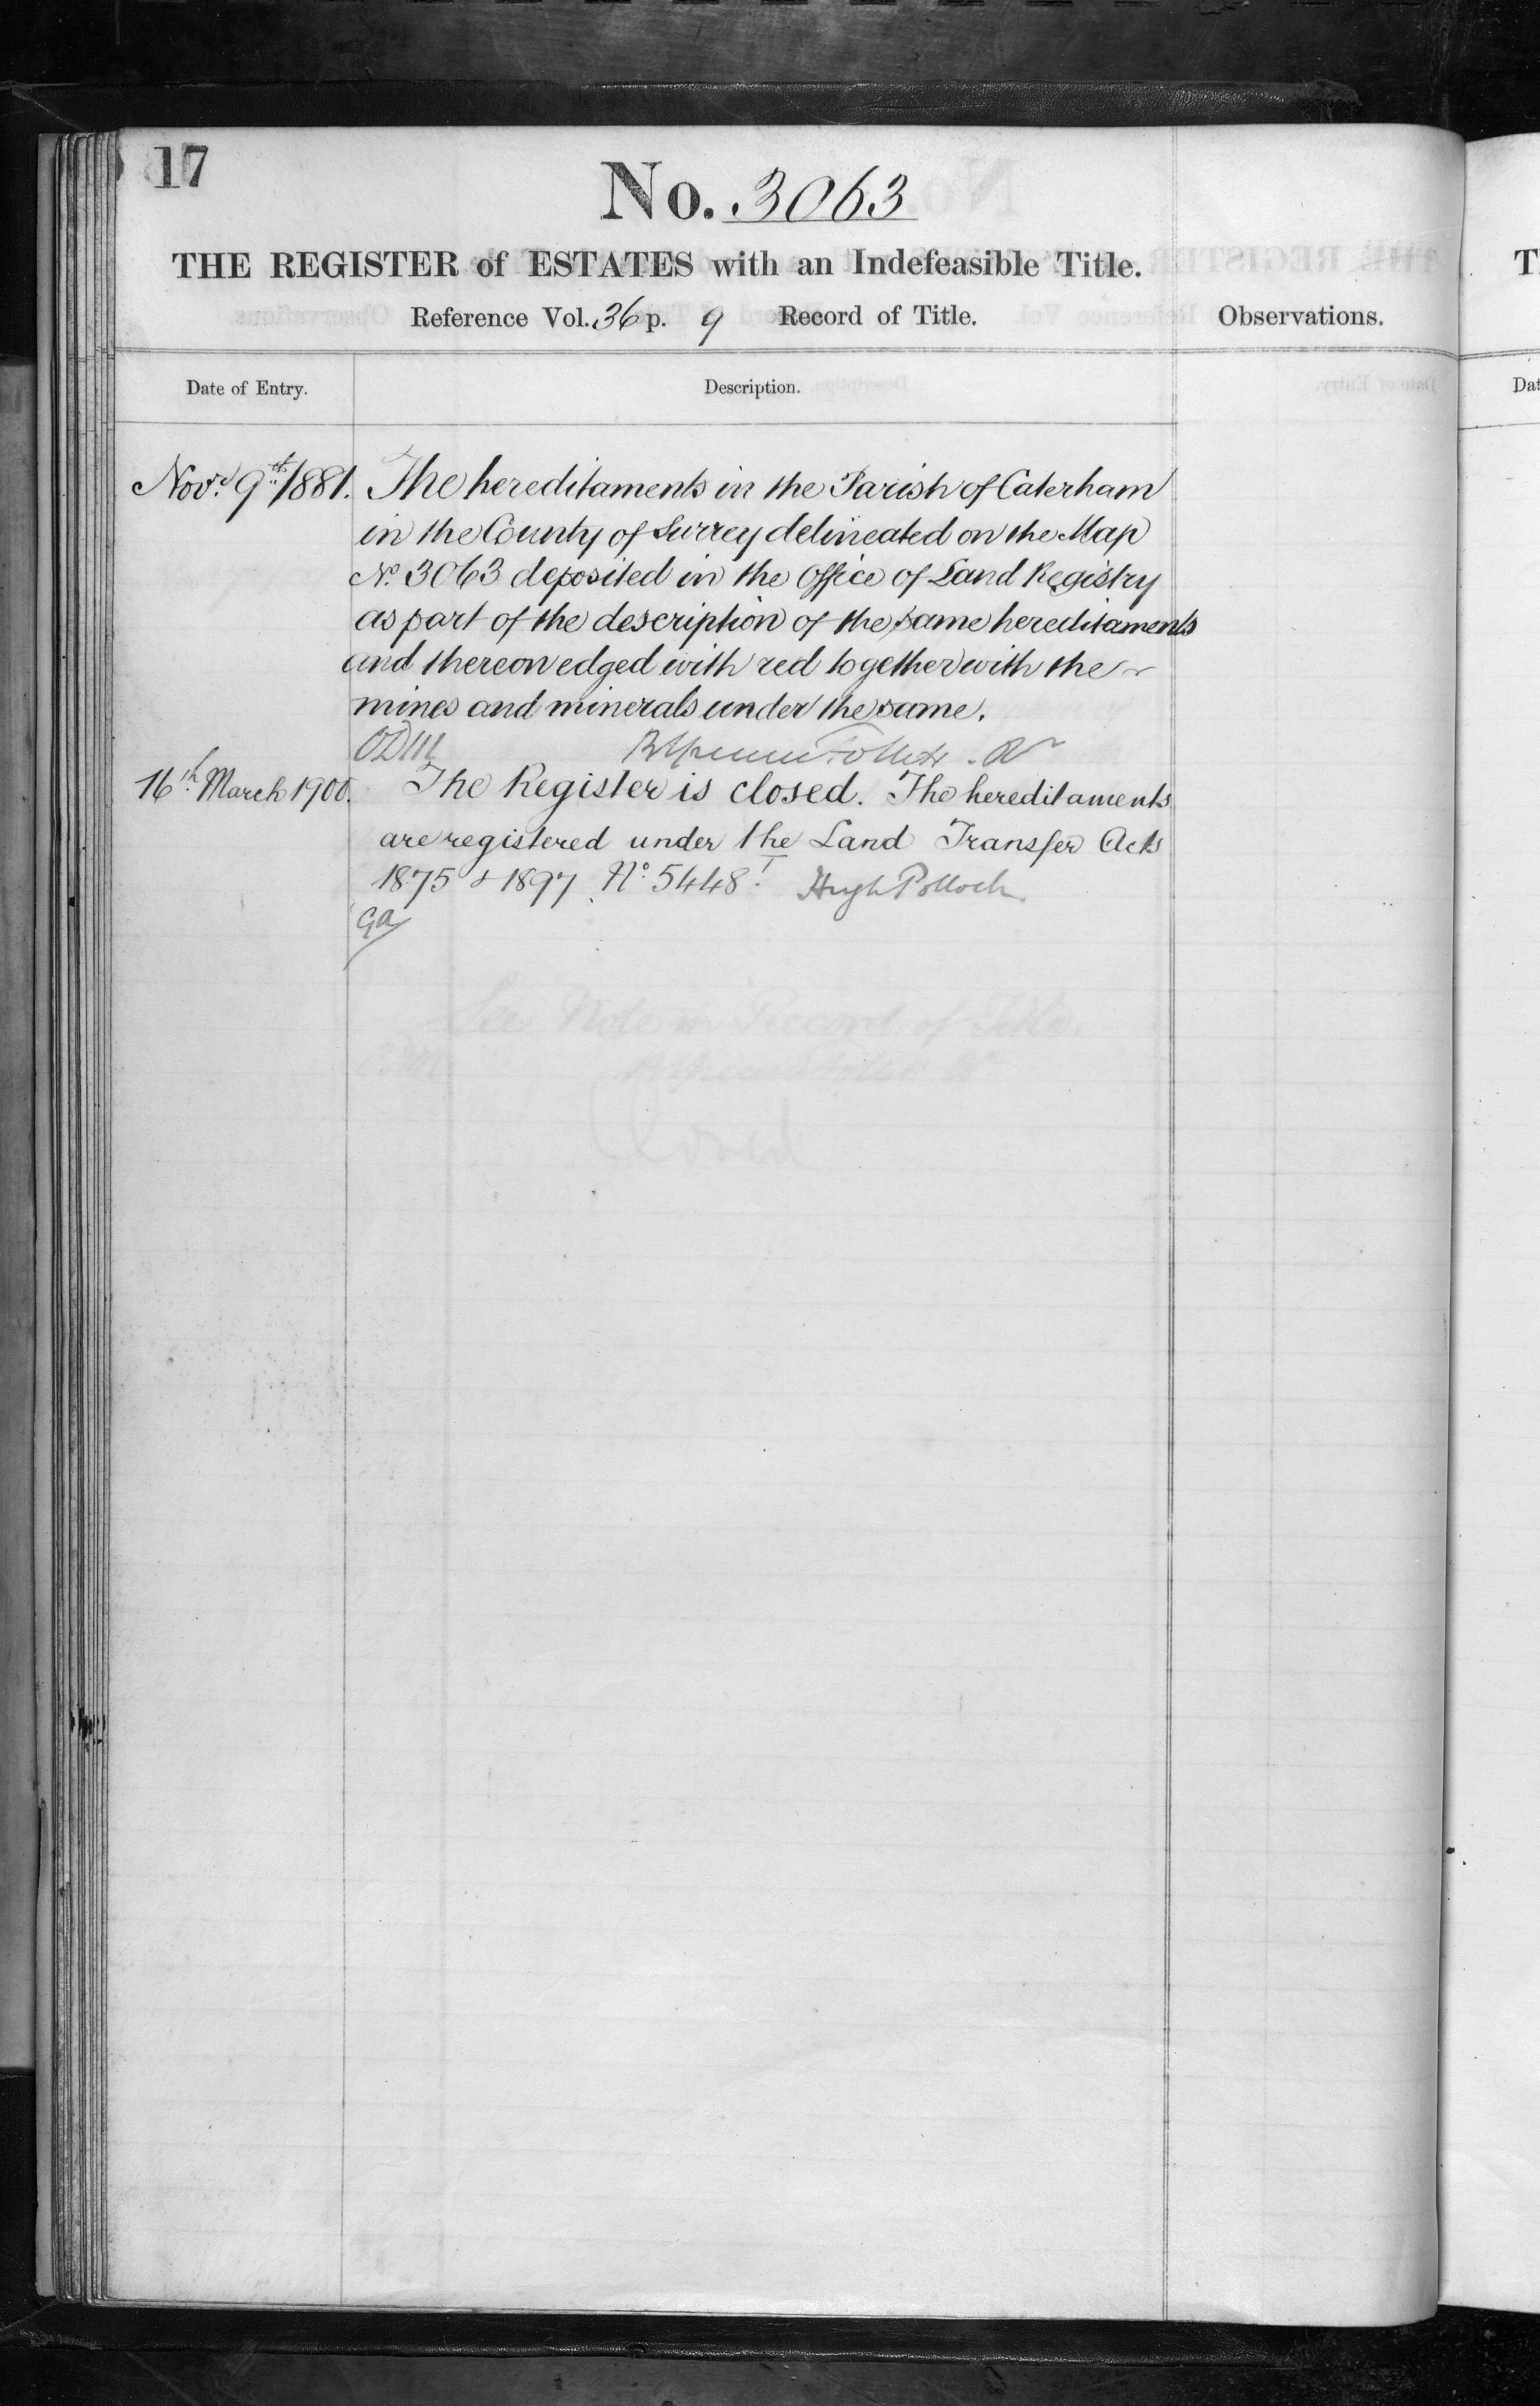 17
No. 3063
THE REGISTER of ESTATES with an Indefeasible Title.
Reference Vol. 36 p. 9 Record of Title.
Observations.
Date of Entry.
Description.
Novr. 9th 1881. The hereditaments in the Parish of Caterham
in the County of Surrey delineated on the Map
No. 3063 deposited in the Office of Land Registry
as part of the description of the same hereditaments
and thereon edged with red together with the
mines and minerals under the same.
Follett. R
16th March 1900. The Register is closed. The hereditaments
are registered under the Land Transfer Acts
1875 & 1897. No. 5448. Hugh Pollock.